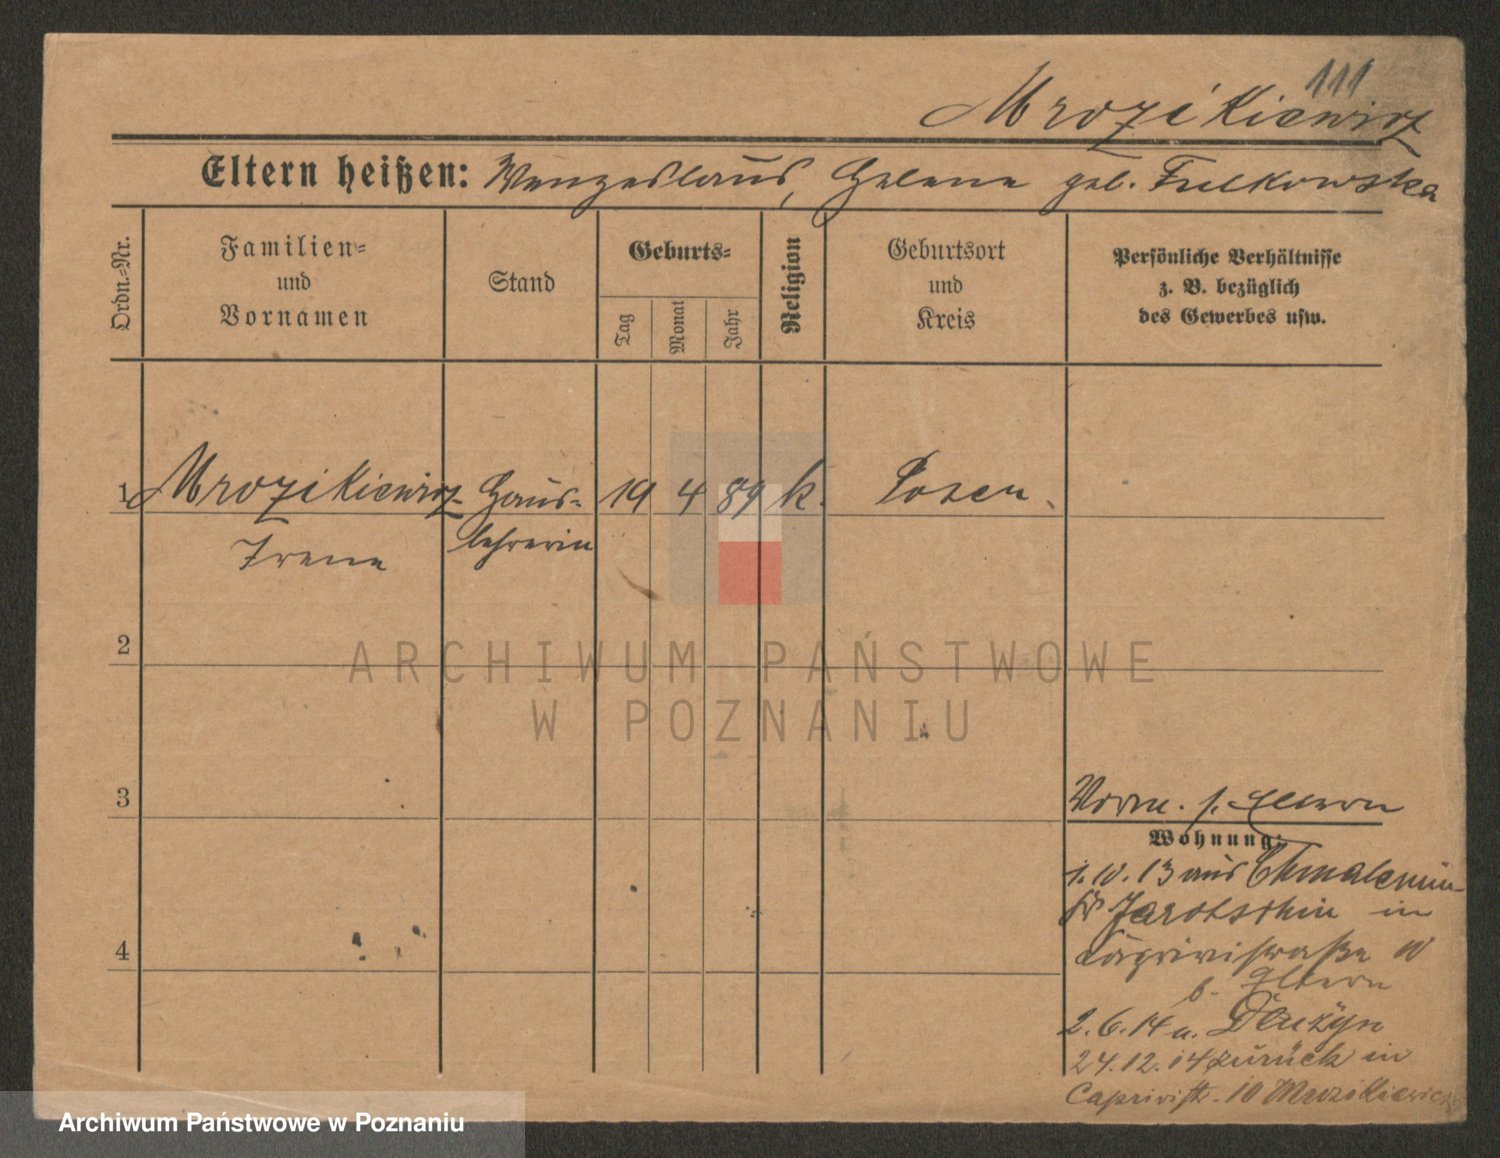 111
Mrozikiewicz
Eltern heißen: Wenzeslaus, Helene geb. Fulkowska
Ordn.-Nr.
Familien-
und
Vornamen
Stand
Geburts-
Tag
Monat
Jahr
Religion
Geburtsort
und
Kreis
Persönliche Verhältnisse
z. B. bezüglich
des Gewerbes usw.
1 Mrozikiewicz Haus- 19 4 89 k. Posen
Irene lehrerin
2
3
4
Vorm. s. Eltern
Wohnung:
1.10.13 aus
Jarotschin in
Caprivistraße 10
b. Eltern
2.6.14 n.
24.12.14 zurück in
Caprivistr. 10 Mrozikiewicz
ARCHIWUM PAŃSTWOWE
W POZNANIU
Archiwum Państwowe w Poznaniu